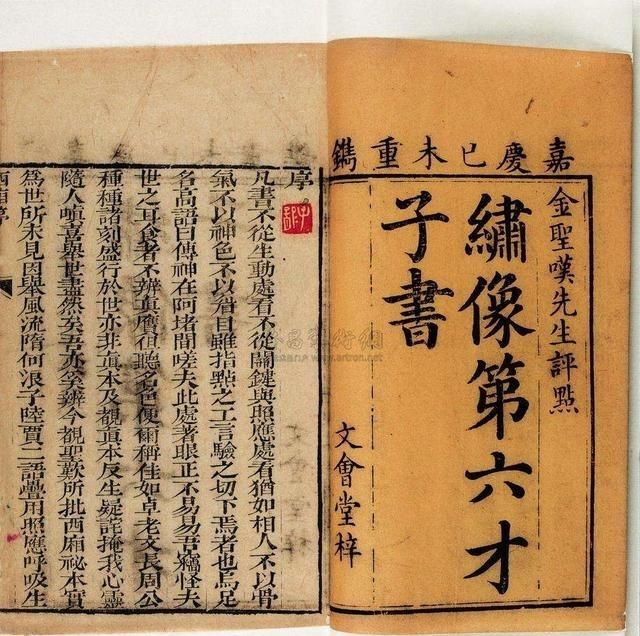 嘉慶已未重鐫
金聖嘆先生評點
繡像第六才
子書
文會堂梓
序
凡書不從生動處看不從關鍵與照應處看猶如相人不以骨
氣不以神色不以眉目雖指點之工言驗之切下焉者也烏足
名高語曰傳神在阿堵間嗟夫此處著眼正不易易吾竊怪夫
世之耳食者不辨真贗但聽名色便爾稱佳如卓老文長周公
種種諸刻盛行於世亦非真本及覩真本反生疑詫掩我心靈
隨人嗔喜舉世盡然矣吾亦奚辨今覩聖歎所批西廂祕本實
為世所未見因舉風流隋何浪子陸賈二語疊用照應呼吸生
西廂序
www.artron.net